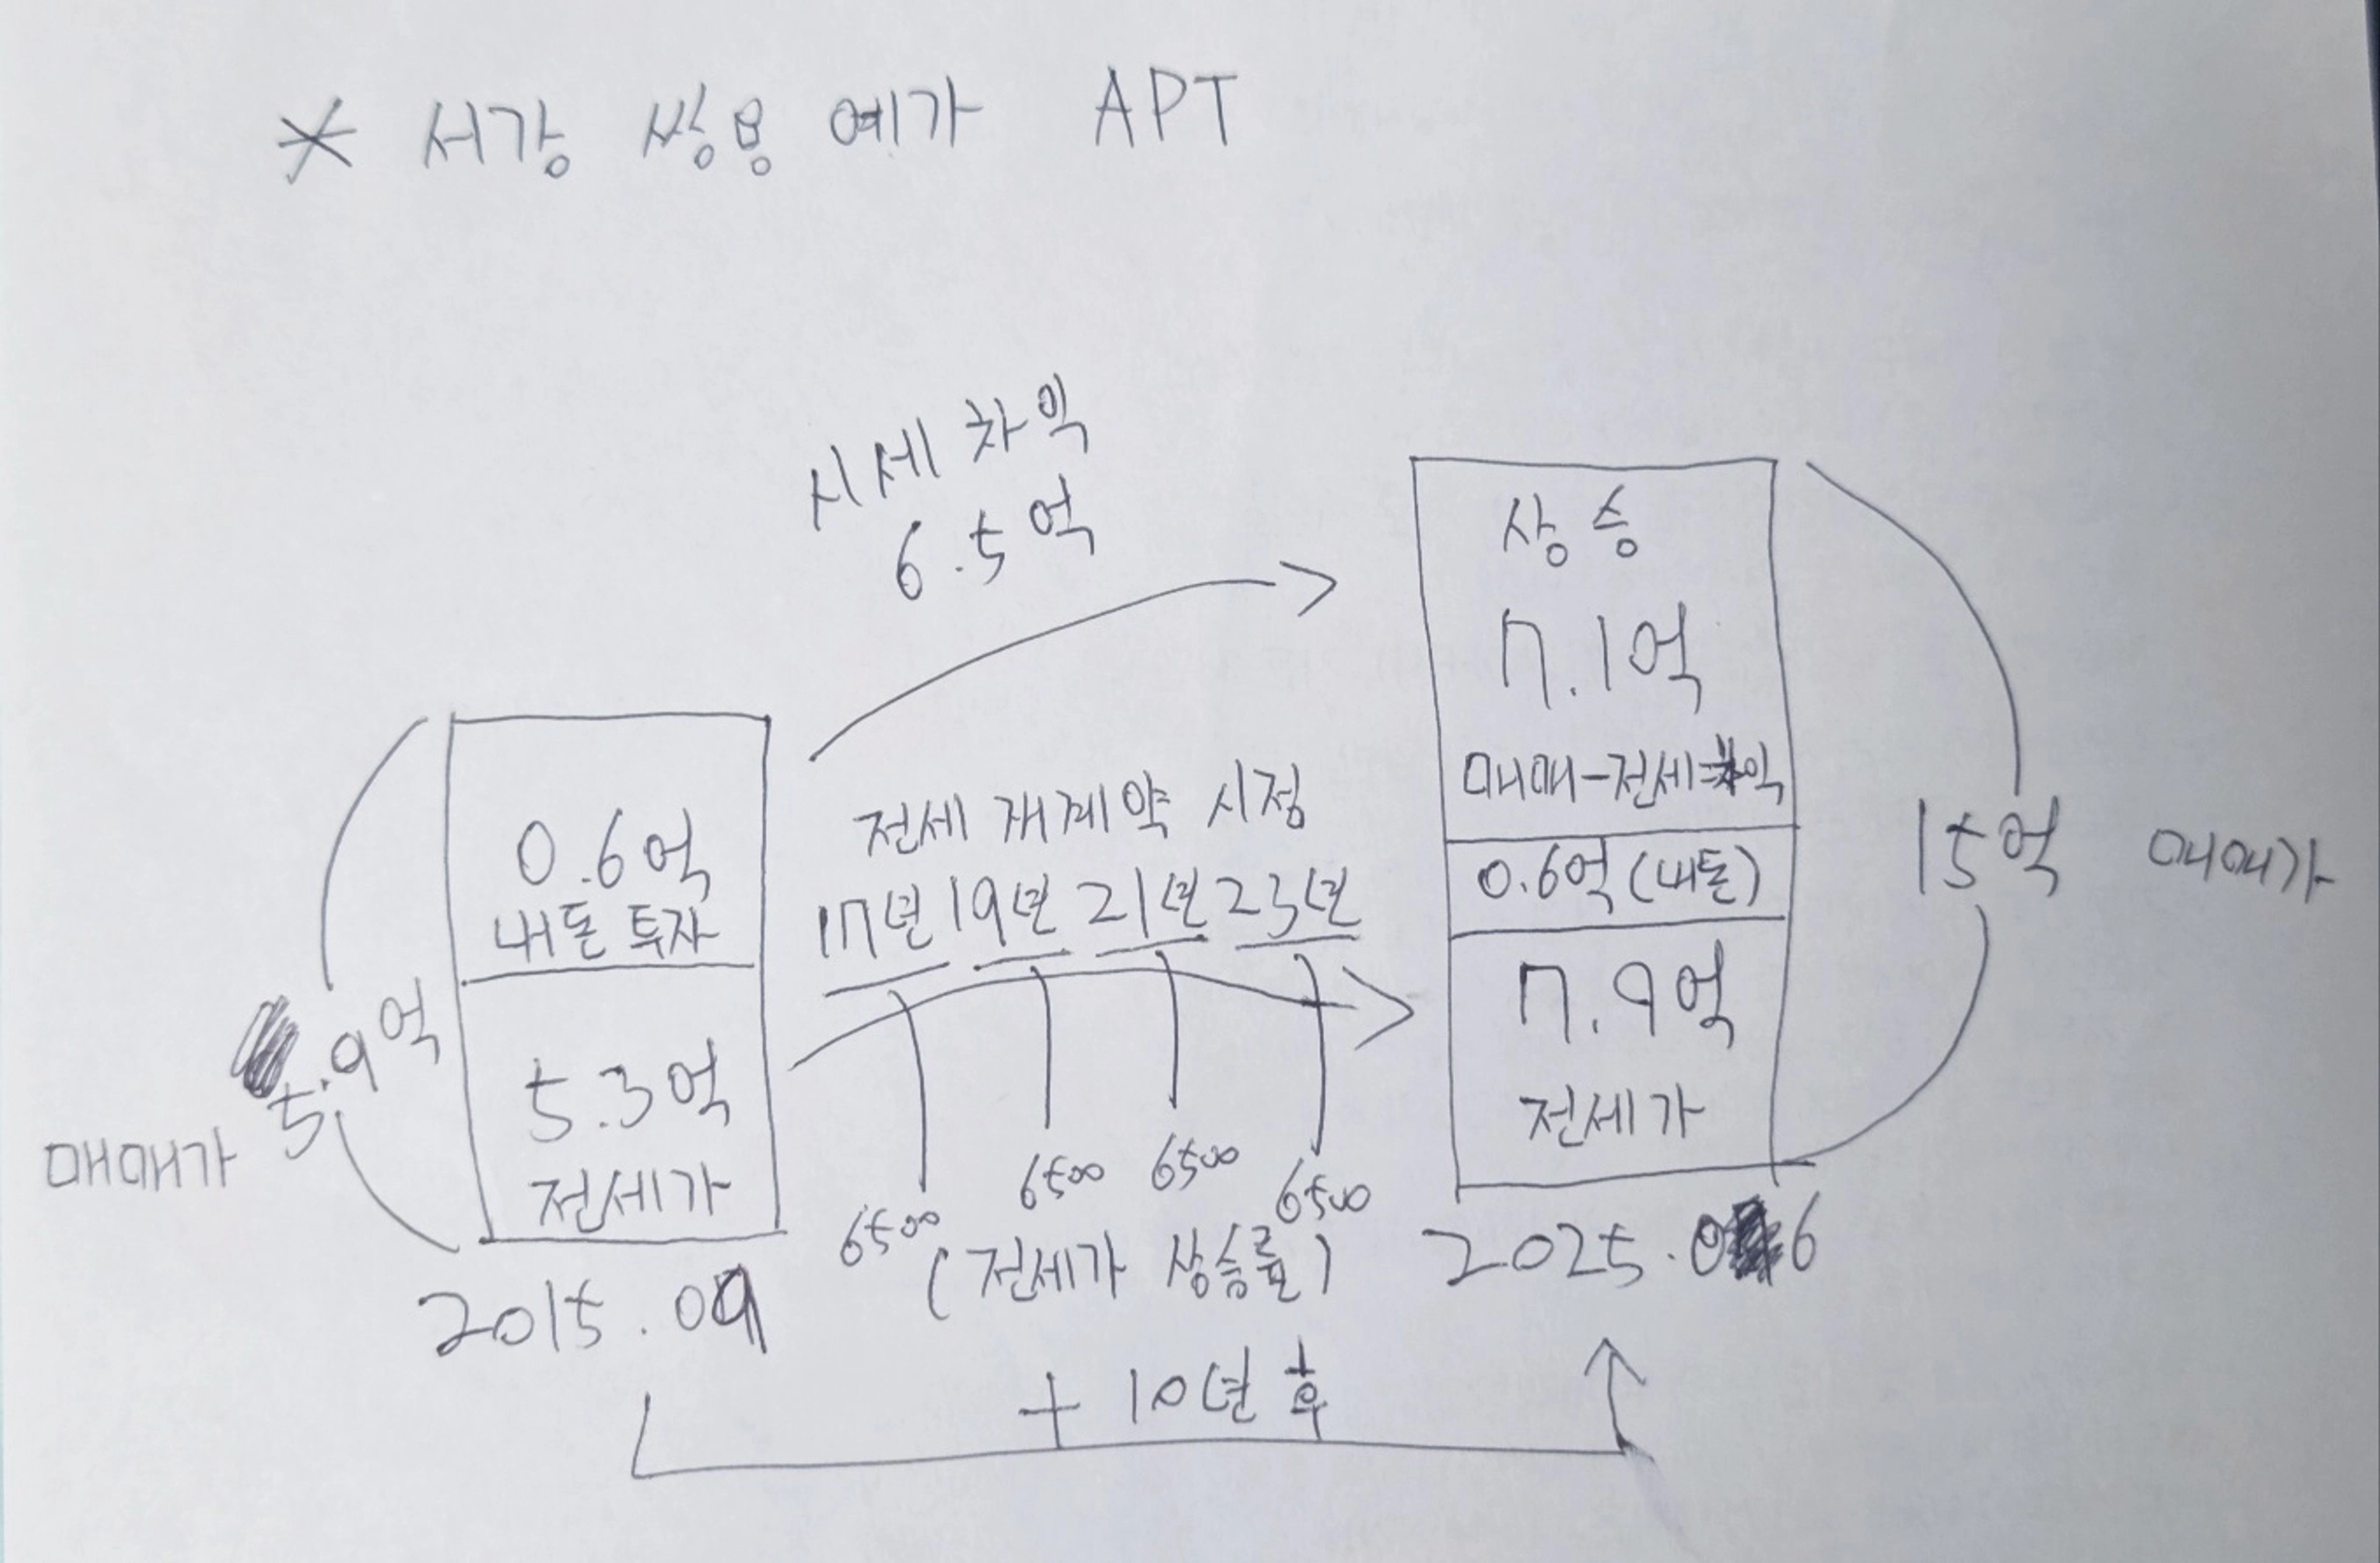 * 서강 쌍용 예가 APT
시세 차익
6.5억
상승
7.1억
매매-전세=차익
0.6억(내돈)
7.9억
전세가
15억 매매가
2025.06
0.6억
내돈 투자
5.3억
전세가
5.9억
매매가
2015.09
전세 재계약 시점
17년 19년 21년 23년
6500 6500 6500 6500
(전세가 상승률)
+ 10년 후